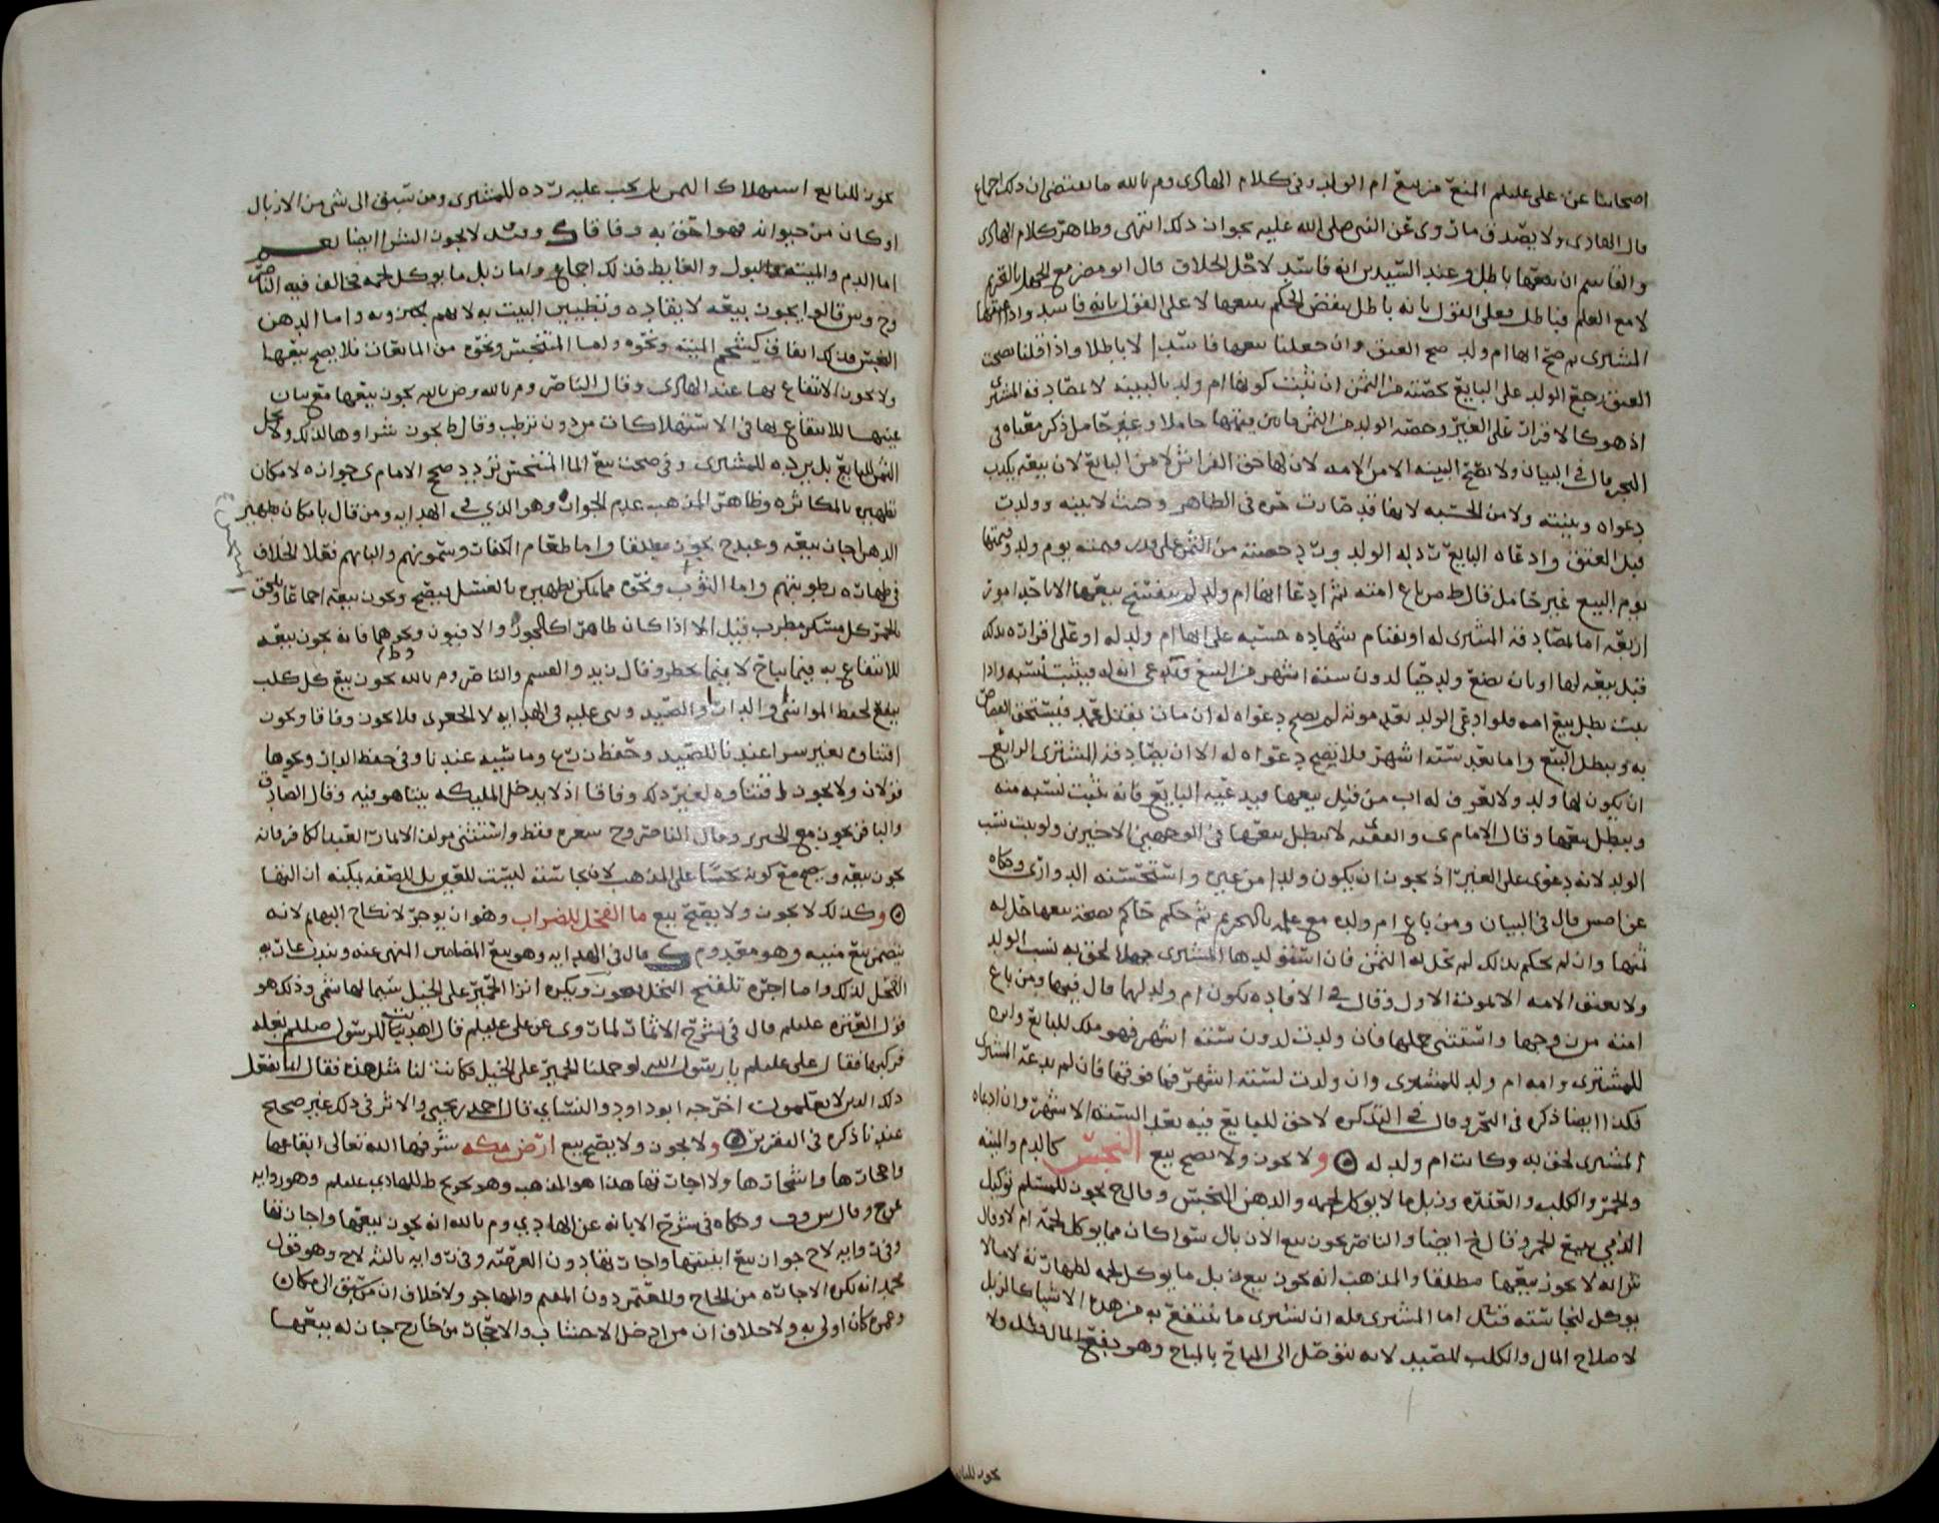 اصحابنا عن علي عليلم المنع من بيع ام الولد وفي كلام الهادي وم بالله ما يقتضي ان ذلك اجماع
قال الهادي ولا يصدق ما روي عن النبي صلى الله عليه بجواز ذلك انتهى وظاهر كلام الهادي
والقاسم ان بيعها باطل وعند السيدين انه فاسد لاجل الخلاف قال ابو مضر مع الجهل بالتحريم
لا مع العلم فباطل فعلى القول بانه باطل ينقض الحكم ببيعها لا على القول بانه فاسد واذا اعتقها
المشتري ثم صح انها ام ولد صح العتق وان جعلنا بيعها فاسدا لا باطلا واذا قلنا بصحة
العتق رجع الولد على البايع بحصته من الثمن ان ثبت كونها ام ولد بالبينه لا بمصادقة المشتري
اذ هو كالاقرار على الغير وحصة الولد من الثمن ما بين قيمتها حاملا وغير حامل ذكر معناه في
البحر قال في البيان ولا تصح البينه الا من الامه لان لها حق الفراش لا من البايع لان بيعه يكذب
دعواه وبينته ولا من الحسبه لانها قد صارت حره في الظاهر وحيث لا بينه وولدت
قبل العتق وادعاه البايع رد له الولد ورد حصته من الثمن على قدر قيمته يوم ولد وقيمتها
يوم البيع غير حامل قال ط ص باع امته ثم ادعا انها ام ولد لم ينفسخ بيعها الا باحد امور
اربعه اما بمصادقة المشتري له او بقيام شهاده حسبه على انها ام ولد له او على اقراره بذلك
قبل بيعه لها او بان تضع ولد حيا لدون ستة اشهر من البيع ويدعي انه له فيثبت نسبه واذا
ثبت بطل بيع امه فلو ادعى الولد بعد موته لم يصح دعواه له ان مات بقتل عمد فيستحق القصاص
به ويبطل البيع واما بعد سته اشهر فلا يصح دعواه له الا ان يصادقه المشتري الرابع
ان يكون لها ولد ولا يعرف له اب من قبل بيعها فيدعيه البايع فانه يثبت نسبه منه
ويبطل بيعها وقال الامام ي والفقيه لا يبطل بيعها في الوجهين الاخيرين ولو ثبت نسب
الولد لانه دعوى على الغير اذ يجوز ان يكون ولدا من غيره واستحسنه الدواري وحكاه
عن قال في البيان ومن باع ام ولده مع علمه بالتحريم ثم حكم حاكم بصحة بيعها حل له
ثمنها وان لم يحكم بذلك لم تحل له الثمن فان استولدها المشتري جهلا لحق به نسب الولد
ولا يعتق الامه الا بموت الاول وقال في الافاده يكون ام ولد لهما قال فيهما ومن باع
امته من زوجها واستثنى حملها فان ولدت لدون ستة اشهر فهو ملك للبايع وان
للمشتري وامه ام ولد للمشتري وان ولدت لستة اشهر فما فوقها فان لم يدعه المشتري
فكذا ايضا ذكره في البحر وقال في التذكره لا حق للبايع فيه بعد الستة الاشهر وان ادعاه
المشتري لحق به وكانت ام ولد له ۞ ولا يجوز ولا يصح بيع النجس كالدم والميته
والخمر والكلب والعذره وزبل ما لا يوكل لحمه والدهن النجس وقال ح يجوز للمسلم توكيل
الذمي ببيع الخمر وقال ح ايضا والناصر يجوز بيع الازبال سوا كان مما يوكل لحمه ام لا وقال
ش انه لا يجوز بيعها مطلقا والمذهب انه يجوز بيع زبل ما يوكل لحمه لطهارته لا ما لا
يوكل لنجاسته قيل اما المشتري فله ان يشتري ما ينتفع به من هذه الاشيا كالزبل
لاصلاح المال والكلب للصيد لانه يتوصل الى المباح بالمباح وهو دفع المال ولا
يجوز للبايع
يجوز للبايع استهلاك الثمن بل يجب عليه رده للمشتري ومن سبق الى شي من الازبال
او كان من حيوانه فهو احق به وفاقا وقيل لا يجوز الشرا ايضا نعم
اما الدم والميته والبول والغايط فذلك اجماع واما زبل ما يوكل لحمه فخالف فيه الناصر
وح وش قالوا يجوز بيعه لايقاده وتطيين البيت به لا واما الدهن
النجس فكذا ايضا في كشحم الميته ونحوه واما المتنجس ونحوه من المايعات فلا يصح بيعها
ولا يجوز الانتفاع بها عند الهادي وقال الناصر وم بالله وض بالله يجوز بيعها مع بيان
عيبها للانتفاع بها في الاستهلاكات من دون ترطب وقال ط يجوز شراوها لذلك ولا يحل
الثمن للبايع بل يرده للمشتري وفي صحة بيع الما المتنجس تردد صحح الامام ي جوازه لامكان
تطهيره بالمكاثره وظاهر المذهب عدم الجواز وهو الذي في الهدايه ومن قال بامكان تطهير
الدهن اجاز بيعه وعند ح يجوز مطلقا واما طعام الكفار وسمونهم والبانهم فعلى الخلاف
في طهارة رطوبتهم واما الثوب ونحوه مما يمكن تطهيره بالغسل فيصح ويجوز بيعه اجماعا ويلحق
بالخمر كل مسكر مطرب قيل الا اذا كان طاهرا كالجوز والافيون ونحوهما فانه يجوز بيعه
للانتفاع به فيما يباح لا فيما يحظر وقال زيد والقسم والناصر وم بالله يجوز بيع كل كلب
ينفع لحفظ المواشي والدار والصيد ونص عليه في الهدايه لا العقور فلا يجوز وفاقا ويجوز
اقتناوه بغير شرا عندنا للصيد وحفظ زرع وماشيه عندنا وفي حفظ الدار ونحوها
قولان ولا يجوز ط قتناوه لغير ذلك وفاقا اذ لا يدخل المليكه بيتا هو فيه وقال الصادق
والباقر يجوز بيع الخنزير وقال الناصر وح شعره فقط واستثنى مولف الاثمار العبد الكافر فانه
يجوز بيعه ويصح مع كونه نجسا على المذهب لان نجاسته ليست للعين بل للصفه يمكنه ازالتها
۞ وكذلك لا يجوز ولا يصح بيع ما الفحل للضراب وهو ان يوجر لانكاح البهايم لانه
يتضمن بيع منيه وهو معدوم قال في الهدايه وهو بيع المضامين المنهي عنه ويندب اعارة
الفحل لذلك واما اجره تلقيح النخل فيجوز ويكره انزا الحمير على الخيل سيما لهاشمي وذلك هو
قول العتره عليلم قال في شرح الاثمار لما روي عن علي عليلم قال اهديت للرسول صللم بغله
فركبها فقال علي عليلم يا رسول الله لو حملنا الحمير على الخيل فكانت لنا مثل هذه فقال انما يفعل
ذلك الذين لا يعلمون اخرجه ابو داود والنسائي قال احمد بن يحيى والاثر في ذلك غير صحيح
عندنا ذكره في التقرير ۞ ولا يجوز ولا يصح بيع ارض مكه شرفها الله تعالى ابقاعها
واحجارها واشجارها ولا اجارتها هذا هو المذهب وهو تخريج ط للهادي عليلم وهو روايه
عن ح وقال س وف وحكاه في شرح الابانه عن الهادي وم بالله انه يجوز بيعها واجارتها
وفي روايه لا ح جواز بيع ابنيتها واجارتها دون العرصه وفي روايه ثالثه لا ح وهو قول
محمد انه تكره الاجاره من الحاج والمعتمر دون المقيم والمهاجر ولا خلاف ان من سبق الى مكان
وعمره كان اولى به ولا خلاف ان من ادخل الاخشاب والاحجار من خارج جاز له بيعها